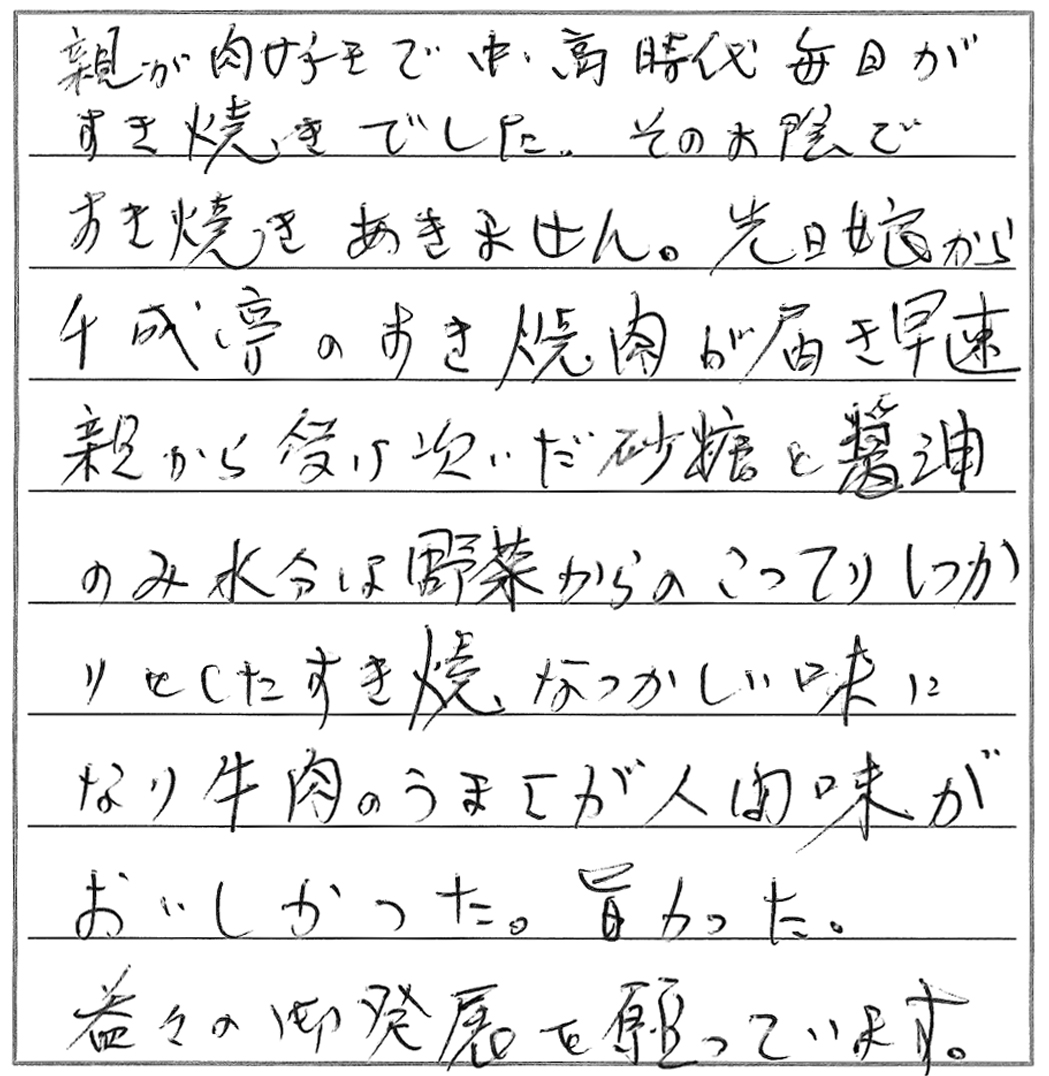 親が肉好きで中・高時代毎日が
すき焼きでした。そのお陰で
すき焼きあきません。先日娘から
千成亭のすき焼肉が届き早速
親から受け次いだ砂糖と醤油
のみ水分は野菜からのこってりしっか
りとしたすき焼、なつかしい味に
なり牛肉のうまさが人間味が
おいしかった。旨かった。
益々の御発展を願っています。